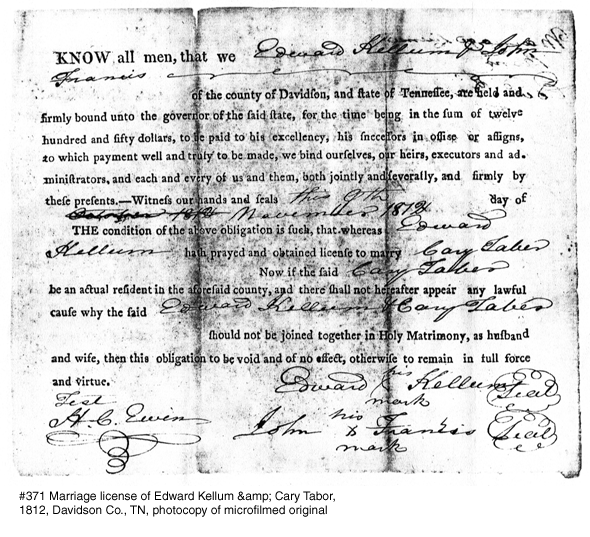 KNOW all men, that we Edward Kellum & John
Francis
of the county of Davidson, and state of Tennessee, are held and
firmly bound unto the governor of the said state, for the time being in the sum of twelve
hundred and fifty dollars, to be paid to his excellency, his successors in office or assigns,
to which payment well and truly to be made, we bind ourselves, our heirs, executors and ad-
ministrators, and each and every of us and them, both jointly and severally, and firmly by
these presents.—Witness our hands and seals this 9th day of
October 1812 November 1812
THE condition of the above obligation is such, that whereas Edward
Kellum hath prayed and obtained license to marry Cary Taber
Now if the said Cary Taber
be an actual resident in the aforesaid county, and there shall not hereafter appear any lawful
cause why the said Edward Kellum & Cary Taber
should not be joined together in Holy Matrimony, as husband
and wife, then this obligation to be void and of no effect, otherwise to remain in full force
and virtue.
Edward his Kellum Seal
mark
Test
H. C. Ewin
John his x Francis Seal
mark
#371 Marriage license of Edward Kellum &amp; Cary Tabor,
1812, Davidson Co., TN, photocopy of microfilmed original